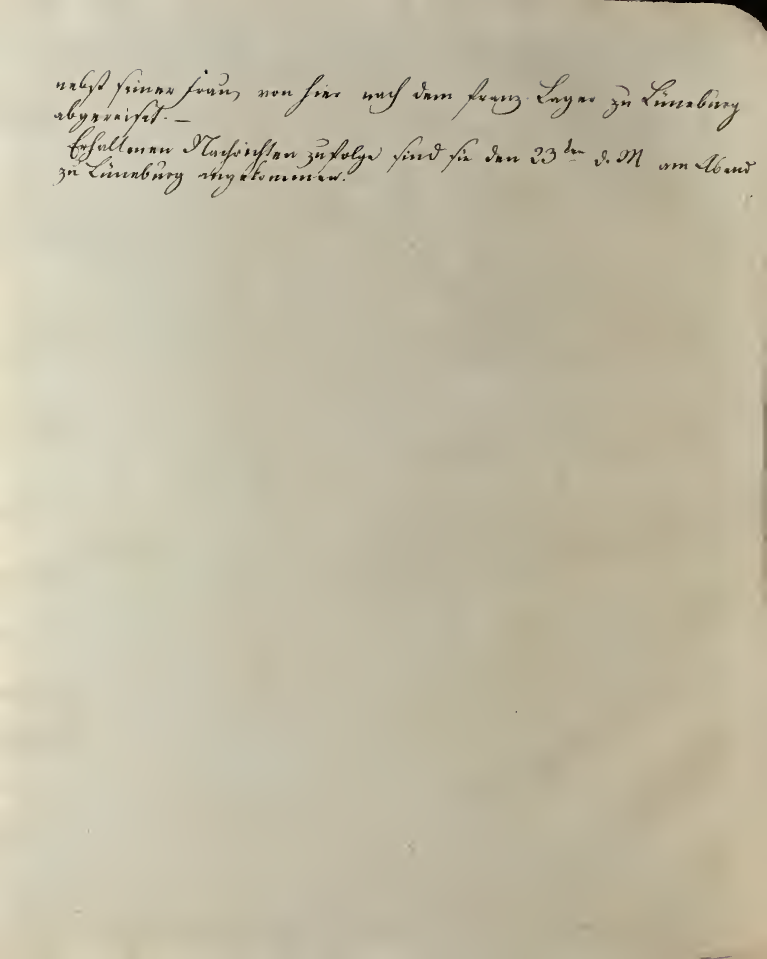 nebst seiner Frau, von hier nach dem franz. Lager zu Lüneburg
abgereiset. —
Erhaltenen Nachrichten zufolge sind sie den 23ten d. M am Abend
zu Lüneburg angekommen.